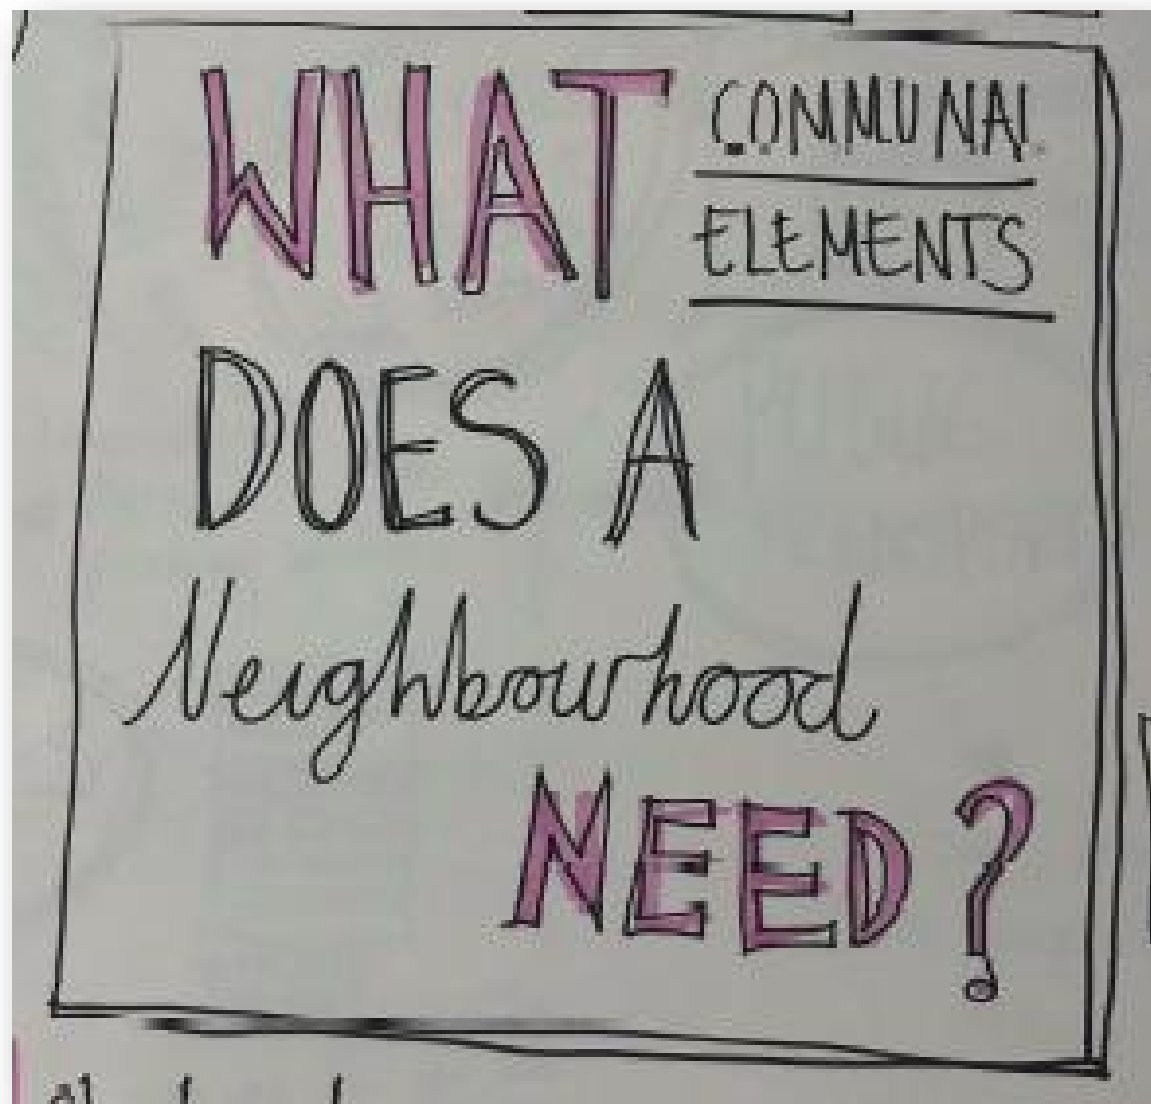 WHAT COMMUNAL
ELEMENTS
DOES A
Neighbourhood
NEED?